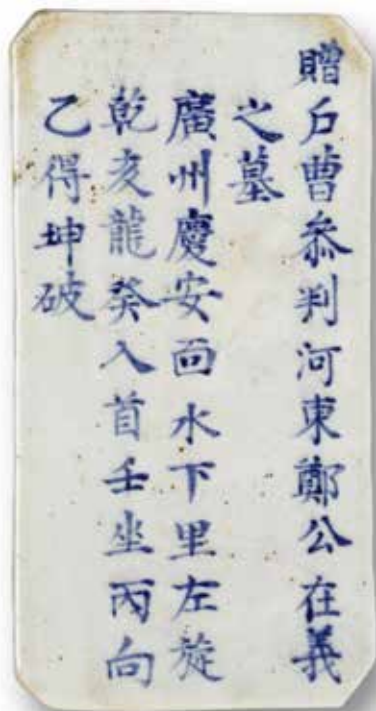 贈戶曹叅判河東鄭公在義
之墓
廣州慶安面水下里左旋
乾亥龍癸入首壬坐丙向
乙得坤破